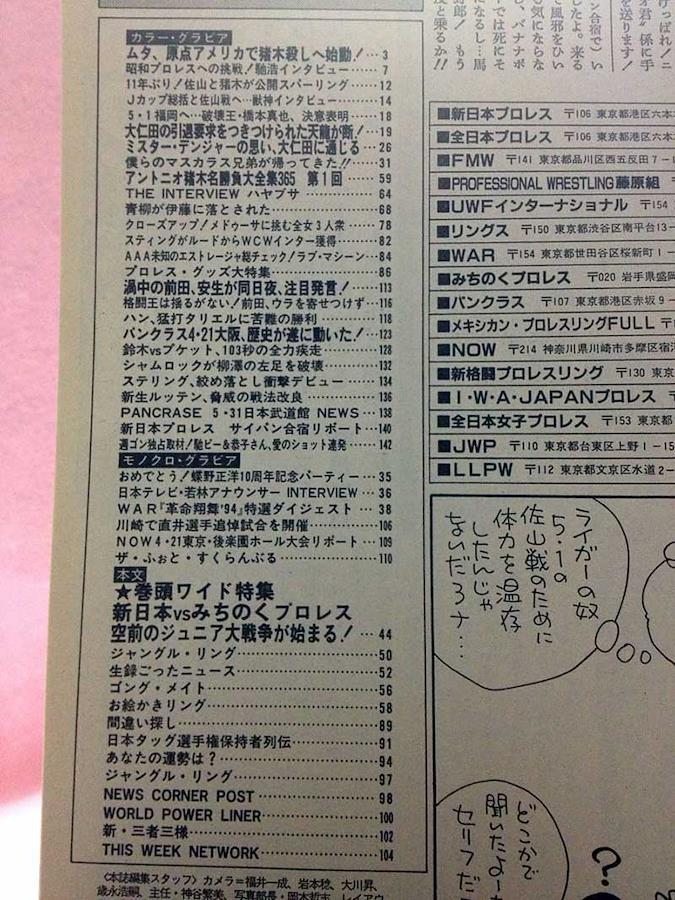 カラー・グラビア
ムタ、原点アメリカで猪木殺しへ始動！… 3
昭和プロレスへの挑戦！馳浩インタビュー…… 7
11年ぶり！佐山と猪木が公開スパーリング…… 12
Jカップ総括と佐山戦へ…獣神インタビュー…… 14
5・1福岡へ…破壊王・橋本真也、決意表明…… 18
大仁田の引退要求をつきつけられた天龍が断！… 19
ミスター・デンジャーの思い、大仁田に通じる… 26
僕らのマスカラス兄弟が帰ってきた!!…… 31
アントニオ猪木名勝負大全集365 第1回…… 59
THE INTERVIEW ハヤブサ…… 64
青柳が伊藤に落とされた…… 68
クローズアップ！メドゥーサに挑む全女3人衆 … 78
スティングがルードからWCWインター獲得…… 82
AAA未知のエストレージャ総チェック！ラブ・マシーン… 84
プロレス・グッズ大特集…… 86
渦中の前田、安生が同日夜、注目発言！… 113
格闘王は揺るがない！前田、ウラを寄せつけず… 116
ハン、猛打タリエルに苦難の勝利…… 118
パンクラス4・21大阪、歴史が遂に動いた！… 123
鈴木vsプケット、103秒の全力疾走…… 128
シャムロックが柳澤の左足を破壊…… 132
ステリング、絞め落とし衝撃デビュー…… 134
新生ルッテン、脅威の戦法改良…… 136
PANCRASE 5・31日本武道館 NEWS… 138
新日本プロレス サイパン合宿リポート… 140
週ゴン独占取材！馳ビー&恭子さん、愛のショット連発…… 142
モノクロ・グラビア
おめでとう！蝶野正洋10周年記念パーティー… 35
日本テレビ・若林アナウンサー INTERVIEW… 36
WAR『革命翔舞'94』特選ダイジェスト… 38
川崎で直井選手追悼試合を開催…… 106
NOW4・21東京・後楽園ホール大会リポート… 109
ザ・ふぉと・すくらんぶる…… 110
本文
★巻頭ワイド特集
新日本vsみちのくプロレス
空前のジュニア大戦争が始まる！… 44
ジャングル・リング…… 50
生録ごったニュース…… 52
ゴング・メイト…… 56
お絵かきリング…… 58
間違い探し…… 89
日本タッグ選手権保持者列伝…… 91
あなたの運勢は？…… 94
ジャングル・リング…… 97
NEWS CORNER POST…… 98
WORLD POWER LINER…… 100
新・三者三様…… 102
THIS WEEK NETWORK…… 104
〈本誌編集スタッフ〉カメラ＝福井一成、岩本稔、大川昇、
歳永浩嗣、主任・神谷繁美、写真部長・岡本哲志
ン合宿で）い
したよ。来る
て風邪をひい
も気にならな
し、バナナボ
では死にそ
になるし…馬
郎！ もう
と乗るか!!
■新日本プロレス 〒106 東京都港区六本
■全日本プロレス 〒106 東京都港区六本
■FMW 〒141 東京都品川区西五反田7-
■PROFESSIONAL WRESTLING藤原組 〒
■UWFインターナショナル 〒154
■リングス 〒150 東京都渋谷区南平台13-
■WAR 〒154 東京都世田谷区桜新町1-
■みちのくプロレス 〒020 岩手県盛岡
■パンクラス 〒107 東京都港区赤坂9-
■メキシカン・プロレスリングFULL 〒
■NOW 〒214 神奈川県川崎市多摩区宿
■新格闘プロレスリング 〒130 東京
■I・W・A・JAPANプロレス 〒
■全日本女子プロレス 〒153 東京
■JWP 〒110 東京都台東区上野1-15
■LLPW 〒112 東京都文京区水道2-
ライガーの奴
5・1の
佐山戦のために
体力を温存
したんじゃ
ないだろナ…
どこかで
聞いたよー
セリフだ
？